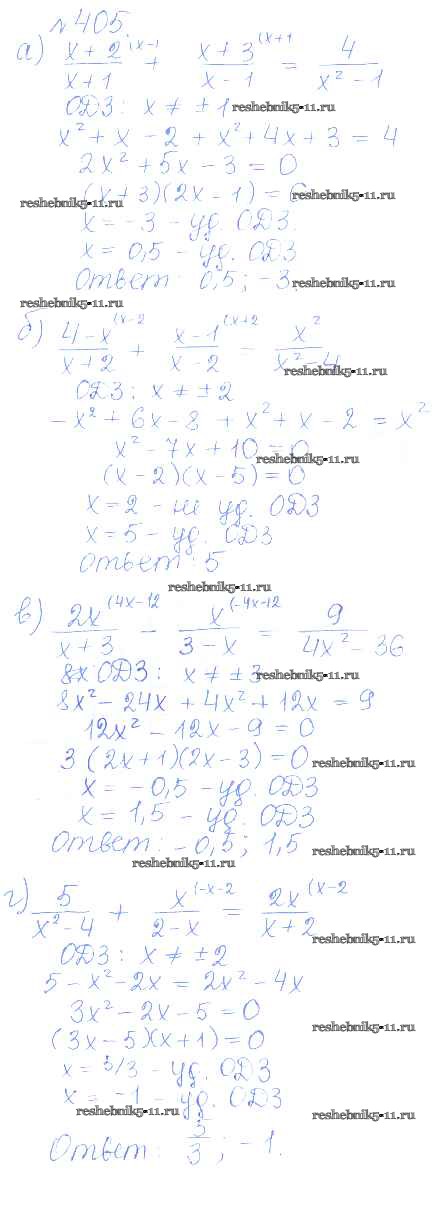 №405.
а) (x+2)/(x+1) (x-1 + (x+3)/(x-1) (x+1 = 4/(x²-1)
ОДЗ: x ≠ ±1 reshebnik5-11.ru
x² + x - 2 + x² + 4x + 3 = 4
2x² + 5x - 3 = 0
(x+3)(2x-1) = 0
reshebnik5-11.ru reshebnik5-11.ru
x = -3 - уд. ОДЗ.
x = 0,5 - уд. ОДЗ
Ответ: 0,5; -3. reshebnik5-11.ru
reshebnik5-11.ru
б) (4-x)/(x+2) (x-2 + (x-1)/(x-2) (x+2 = x²/(x²-4)
reshebnik5-11.ru
ОДЗ: x ≠ ±2
-x² + 6x - 8 + x² + x - 2 = x²
x² - 7x + 10 = 0
reshebnik5-11.ru
(x-2)(x-5) = 0
x = 2 - не уд. ОДЗ
x = 5 - уд. ОДЗ
Ответ: 5
reshebnik5-11.ru
в) 2x/(x+3) (4x-12 - x/(3-x) (-4x-12 = 9/(4x²-36)
ОДЗ: x ≠ ±3 reshebnik5-11.ru
8x² - 24x + 4x² + 12x = 9
12x² - 12x - 9 = 0
3(2x+1)(2x-3) = 0 reshebnik5-11.ru
x = -0,5 - уд. ОДЗ
x = 1,5 - уд. ОДЗ
Ответ: -0,5; 1,5 reshebnik5-11.ru
reshebnik5-11.ru
г) 5/(x²-4) + x/(2-x) (-x-2 = 2x/(x+2) (x-2
reshebnik5-11.ru
ОДЗ: x ≠ ±2
5 - x² - 2x = 2x² - 4x
3x² - 2x - 5 = 0
reshebnik5-11.ru
(3x-5)(x+1) = 0
x = 5/3 - уд. ОДЗ
x = -1 - уд. ОДЗ
reshebnik5-11.ru reshebnik5-11.ru
Ответ: 5/3; -1.